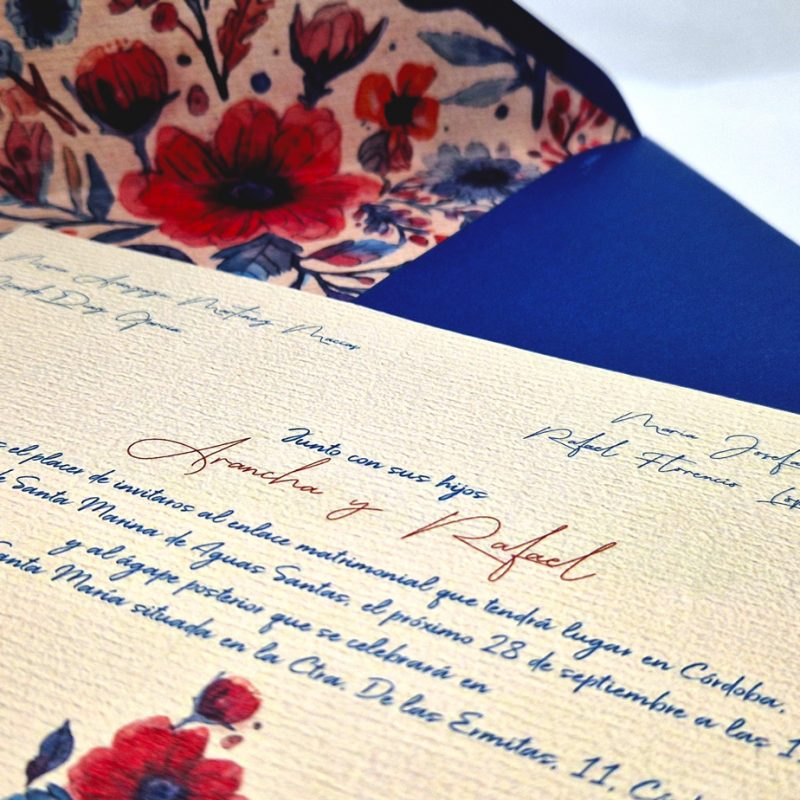 Martínez Macías
Díaz García
María Josefa
Rafael Florencio
Junto con sus hijos
Arancha y Rafael
el placer de invitaros al enlace matrimonial que tendrá lugar en Córdoba,
de Santa Marina de Aguas Santas, el próximo 28 de septiembre a las
y al ágape posterior que se celebrará en
Santa María situada en la Ctra. De las Ermitas, 11,